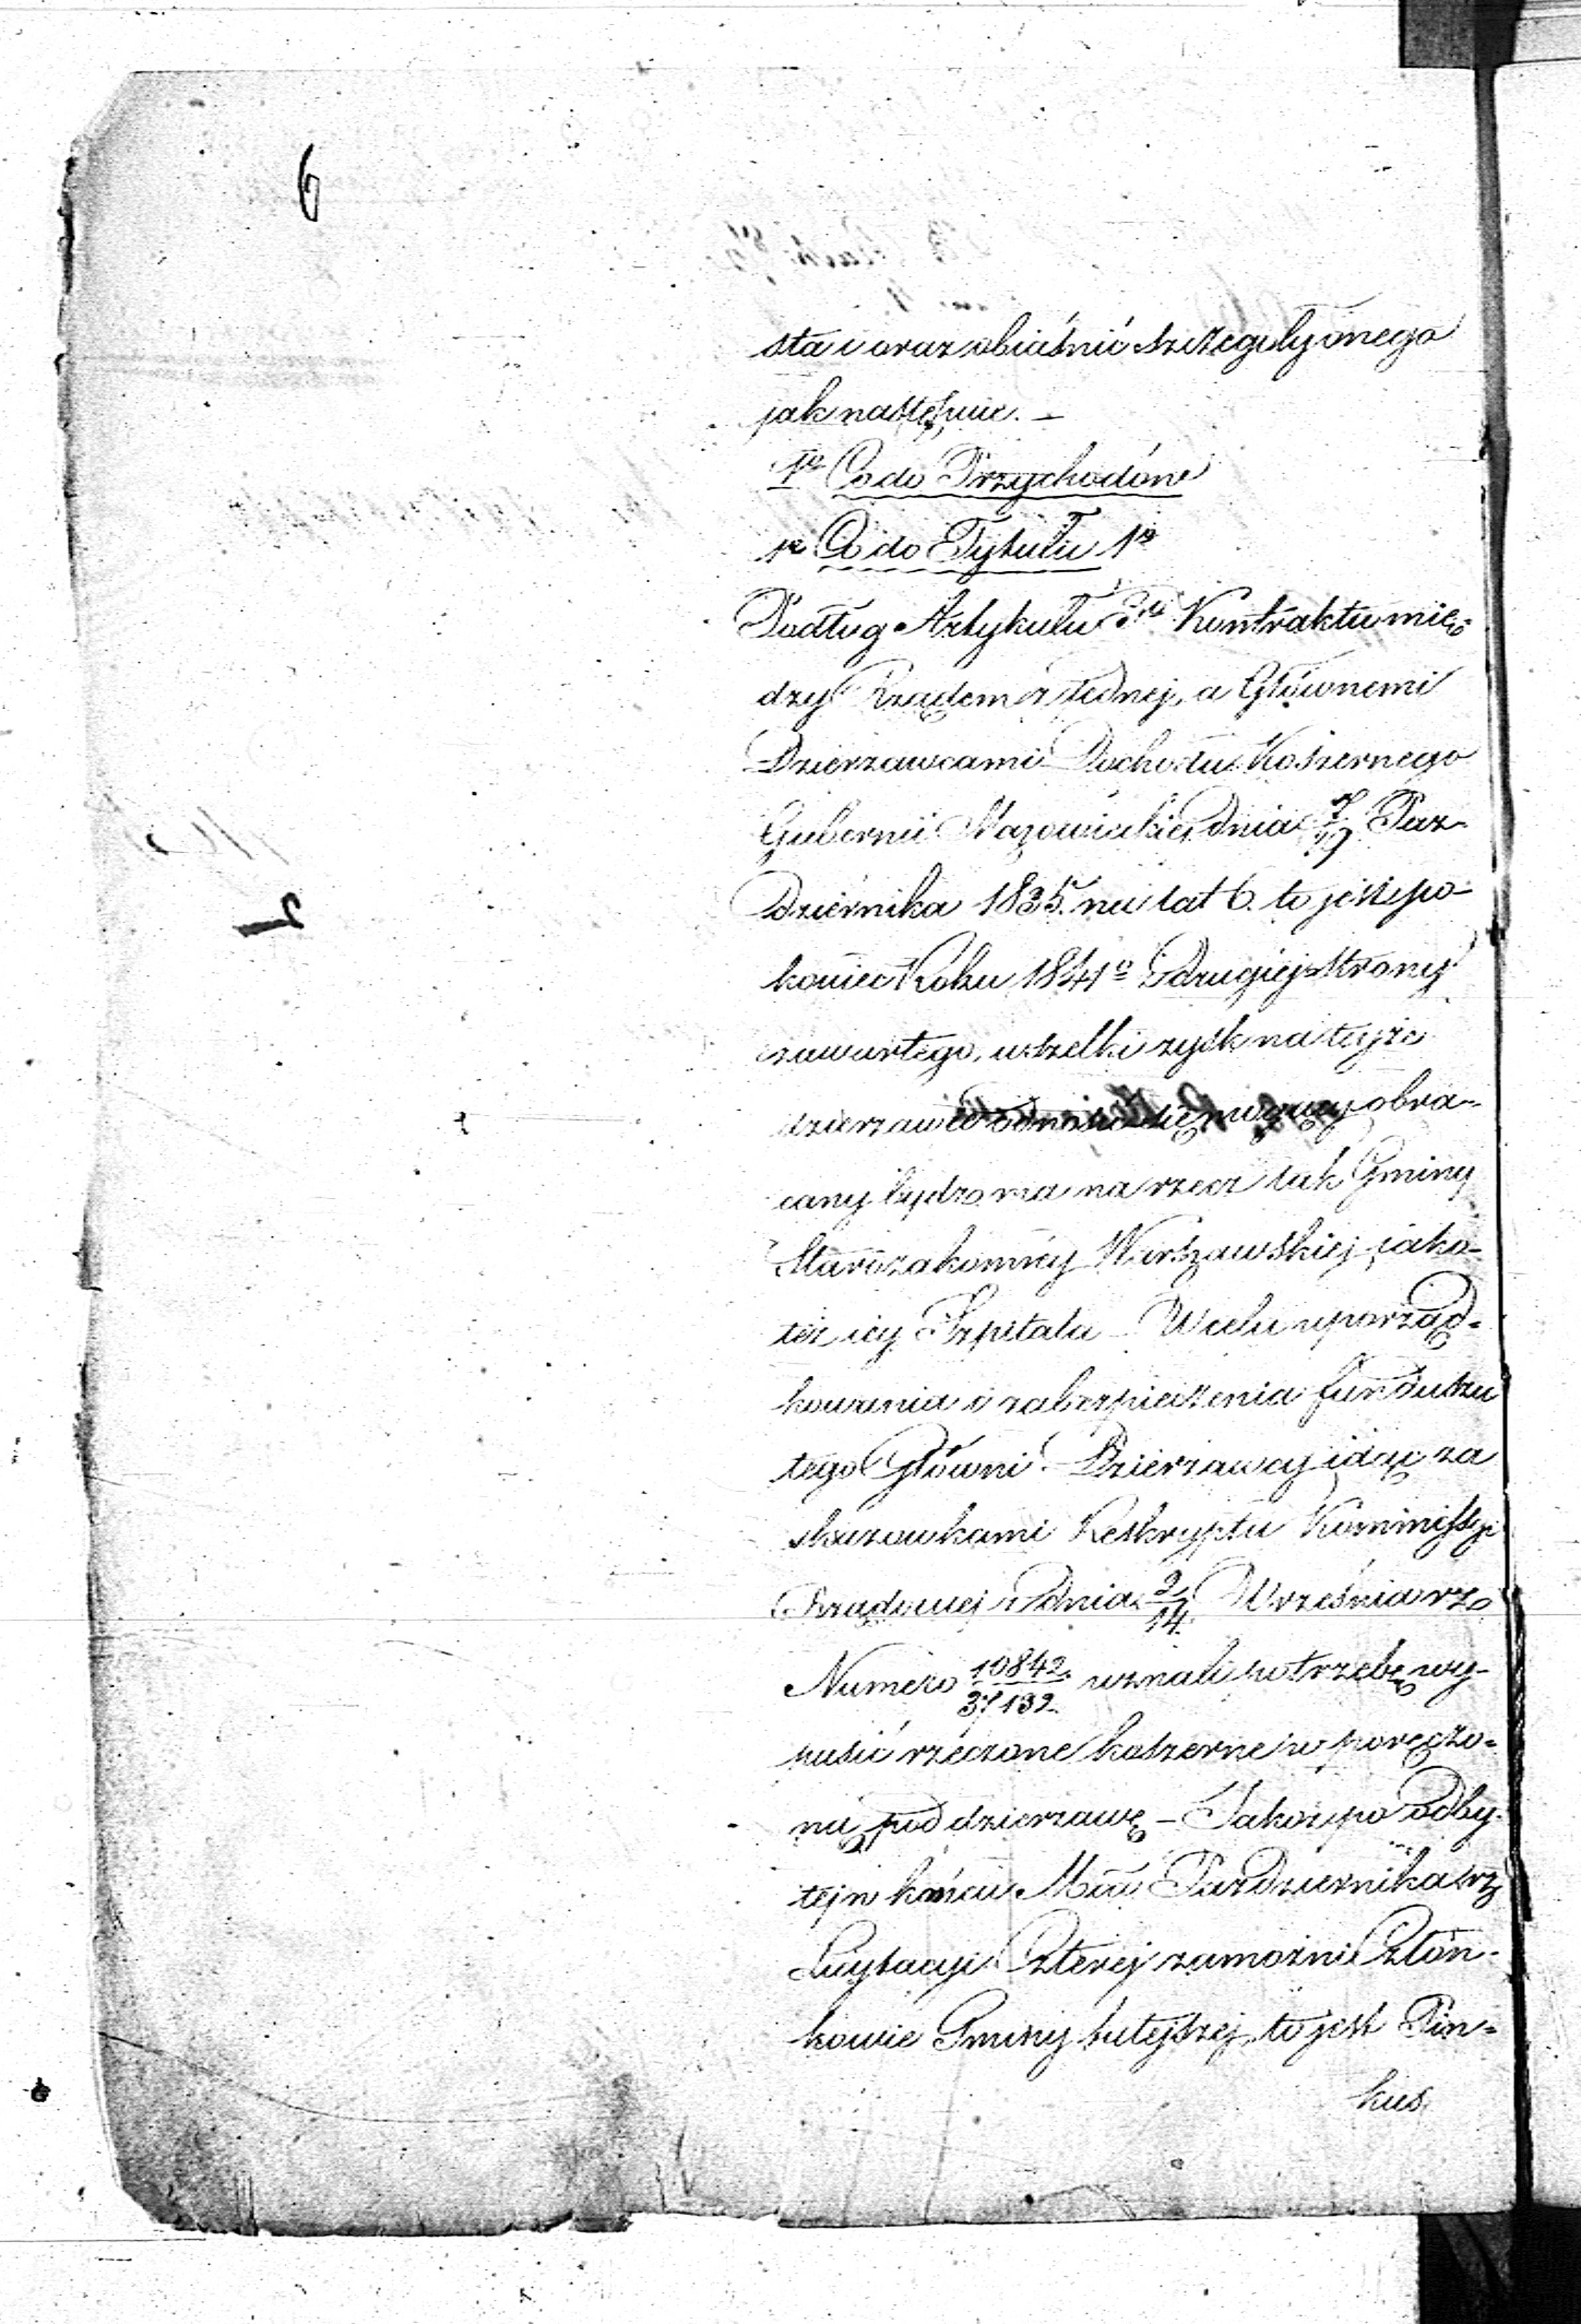 6
sta i oraz obiaśnić szczeguły onego
jak następuie. –
1º Co do Przychodów
1º Co do Tytułu 1º
Podług Artykułu Kontraktu mię-
dzy Rządem z iednej, a Głównemi
Dzierzawcami Dochodu Koszernego
Gubernii Mazowieckiej dnia 7/19 Paz-
dziernika 1835. na lat 6. to jest po
koniec Roku 1841º z drugiej strony
zawartego, wszelki zysk na tejże
dzierzawie się mogący obra-
cany bydz ma na rzecz tak Gminy
Starozakonney Warszawskiej jako-
też iey Szpitala – W celu uporząd-
kowania i zabezpieczenia funduszu
tego Główni Dzierzawcy idąc za
skazowkami Reskryptu Kommissyi
Rządowej z dnia 2/14 Września rz
Numero 10842/37132 uznali potrzebę wy-
puścić rzeczone koszerne w poręczo-
ną pod dzierzawę – Jakoż po odby-
tej w końcu Mca Pazdziernika rz
Licytacyi Czterej zamożni Człon-
kowie Gminy tutejszej, to jest Pin-
kus
2